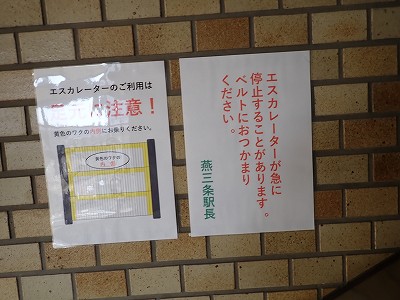 エスカレーターのご利用は
注意！
黄色のワクの内側にお乗りください。
黄色のワクの
内側
エスカレーターが急に
停止することがあります。
ベルトにおつかまり
ください。
燕三条駅長